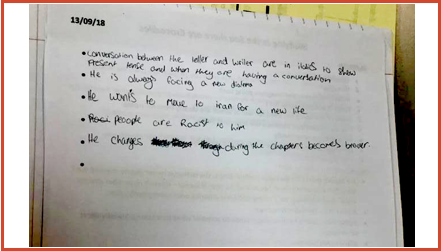 13/09/18
• Conversation between the teller and writer are in italics to show
Present tense and when they are having a conversation
• He is always facing a new
• He wants to move to Iran for a new life
• People are Racist to him
• He changes during the chapters becomes braver.
•